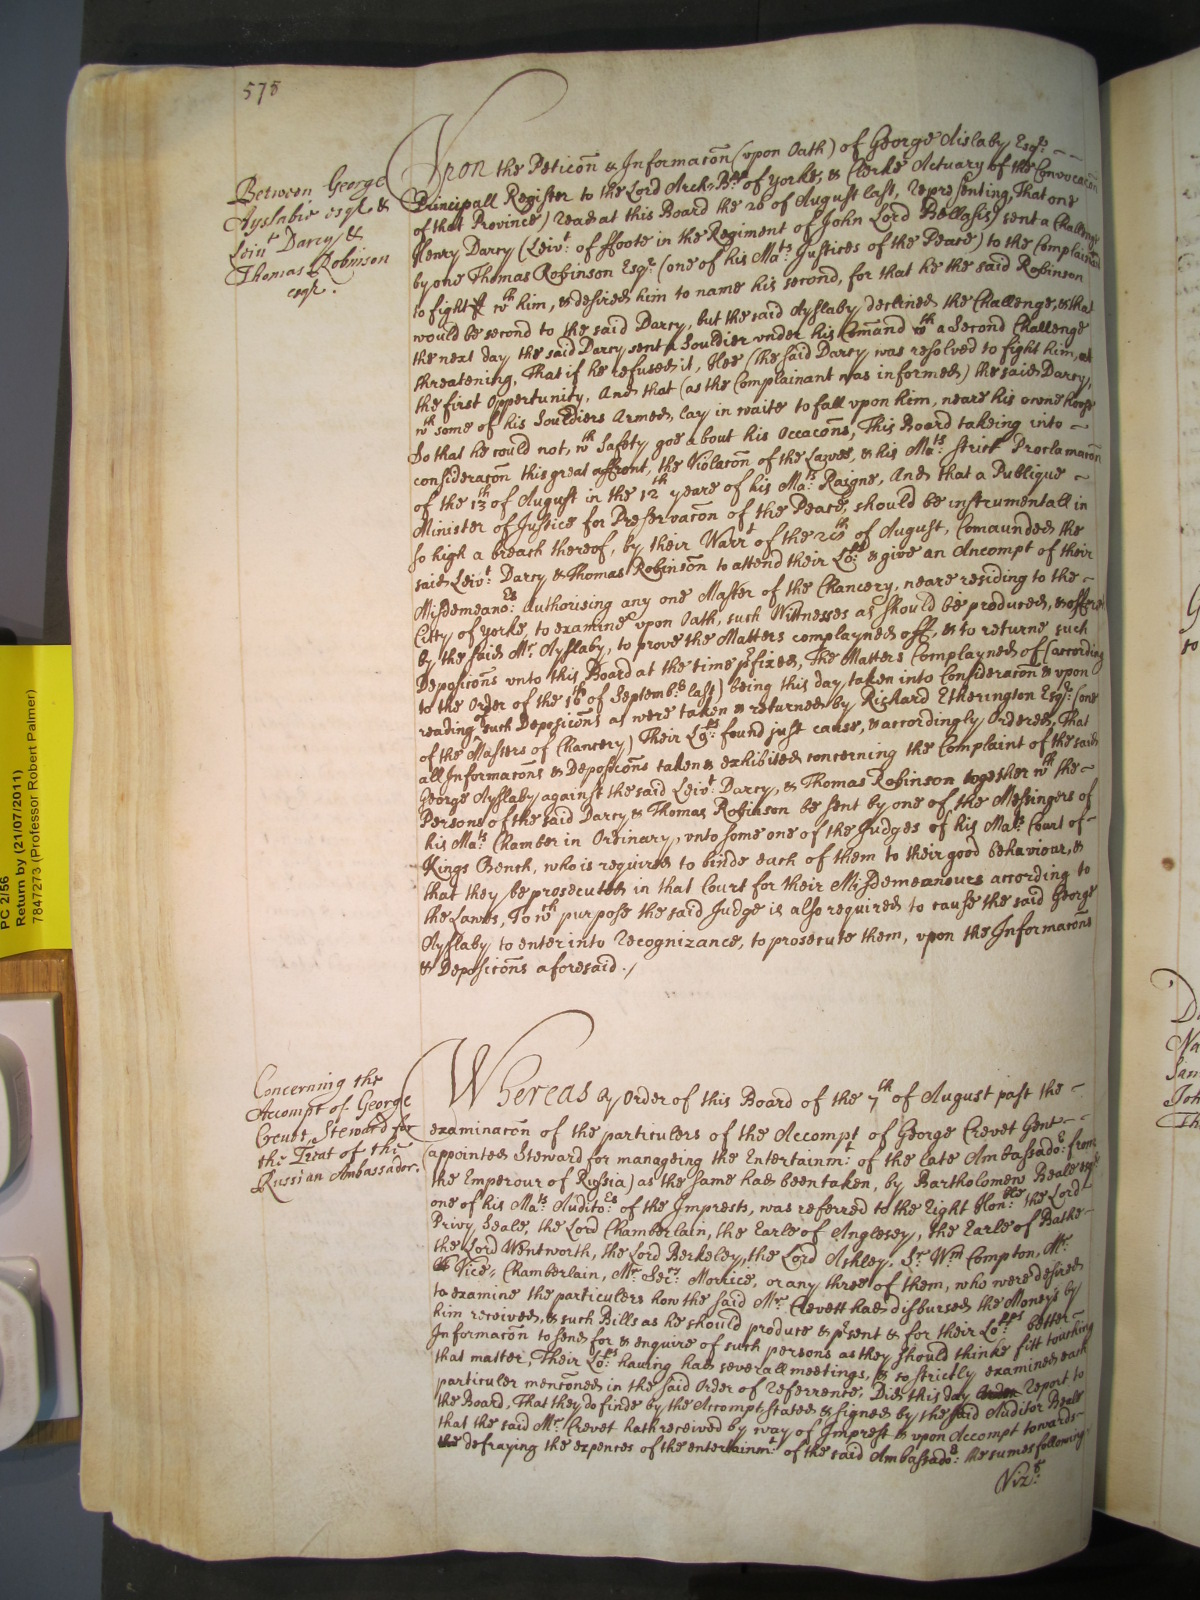 578
Between George
Ayslabie esqr. &
Leivt Darcy, &
Thomas Robinson
esqr.
Upon the Peticõn & Informacõn (vpon Oath) of George Aislaby Esqr.
Principall Register to the Lord Arch-Bpp of Yorke, & Clerke Actuary of the Convocacõn
of that Province) Read at this Board the 26 of August last, Representing, That one
Henry Darcy (Leivt: of ffoote in the Regiment of John Lord Bellasis) sent a Challenge
by one Thomas Robinson Esqr. (one of his Mats Justices of the Peace) to the Complainant
to fight wth him, & desired him to name his second, for that he the said Robinson
would be second to the said Darcy, but the said Ayslaby declined the Challenge, & that
the next day the said Darcy sent a Souldier vnder his Comand wth a Second Challenge
threatening, That if he refused it, Hee (the said Darcy was resolved to fight him, at
the first Opportunity, And that (as the Complainant was informed) the said Darcy,
wth some of his Souldiers Armed, lay in waite to fall vpon him, neare his owne house
So that he could not, wth Safety goe about his Occacõns, This Board takeing into
consideracõn this great affront, the Violacõn of the Lawes, & his Mats strict Proclamacõn
of the 13th of August in the 12th yeare of his Mats Raigne, And that a Publique
Minister of Justice for Preservacõn of the Peace, should be instrumentall in
so high a breach thereof, by their Warrt of the 26th of August, Comaunded the
said Leivt: Darcy & Thomas Robinson to attend their Lopps & give an Accompt of their
Misdemeanors: authorising any one Master of the Chancery, neare residing to the
Citty of Yorke, to examine vpon Oath, such Wittnesses as should be produced, & offered
by the said Mr. Ayslaby, to prove the Matters complayned off, & to returne such
Deposicõns vnto this Board at the time pfixed, The Matters Complayned of (according
to the Order of the 16th of Septembr last) being this day taken into Consideracõn & vpon
reading such Deposicõns as were taken & returned by Richard Etherington Esqr: (one
of the Masters of Chancery) Their Lopps found just cause, & accordingly Ordered, That
all Informacõns & Deposicõns taken & exhibited concerning the Complaint of the said
George Ayslaby against the said Leivt: Darcy, & Thomas Robinson together wth the
Persons of the said Darcy & Thomas Robinson be sent by one of the Messingers of
his Mats Chamber in Ordinary, vnto some one of the Judges of his Mats Court of
Kings Bench, who is required to binde each of them to their good behaviour, &
that they be prosecuted in that Court for their Misdemeanours according to
the Lawes, To wch purpose the said Judge is also required to cause the said George
Ayslaby to enter into Recognizance, to prosecute them, vpon the Informacõns
& Deposicõns aforesaid./
Concerning the
Accompt of George
Crevet, Steward for
the Treat of the
Russian Ambassador.
Whereas by Order of this Board of the 7th of August past the
examinacõn of the particulers of the Accompt of George Crevet Gent
(appointed Steward for manageing the Entertainmt. of the late Ambassador: from
the Emperour of Russia) as the same had been taken, by Bartholomew Beale esqr
one of his Mats Auditors of the Imprests, was referred to the Right Honble: the Lord
Privy Seale, the Lord Chamberlain, the Earle of Anglesey, the Earle of Bathe
the Lord Wentworth, the Lord Berkeley, the Lord Ashley, Sr Wm Compton, Mr.
Vice, Chamberlain, Mr. Secry. Morrice, or any three of them, who were desired
to examine the particulers how the said Mr. Crevett had disbursed the Moneys by
him received, & such Bills as he should produce & psent & for their Lopps better
Informacõn to send for & enquire of such persons as they should thinke fitt touching
that matter, Their Lopps having had severall meetings, & so strictly examined each
particuler mencõned in the said Order of Referrence, Did this day Report to
the Board, That they do finde by the Accompt stated & signed by the said Auditor Beale
that the said Mr. Crevet hath received by way of Imprest & vpon Accompt towards
the defraying the expences of the entertainmt. of the said Ambassador: the sumes following
Vizt:
PC 2/56
Return by (21/07/2011)
7847273 (Professor Robert Palmer)